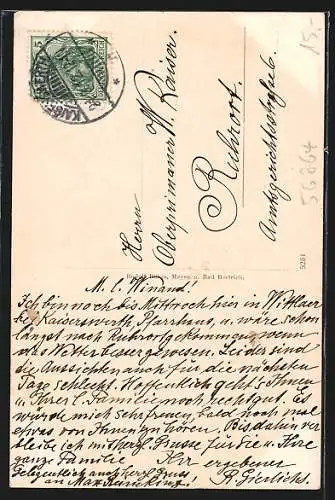 15.-
56264
Herrn
Oberprimaner W. Kaiser.
Ruhrort.
Amtsgerichtsstraße 6.
5261
Mayen u. Bad Bertrich.
M. l. Winand!
Ich bin noch bis Mittwoch hier in Wittlaer
bei Kaiserswerth, Pfarrhaus, u. wäre schon
längst nach Ruhrort gekommen, wenn
das Wetter besser gewesen. Leider sind
die Aussichten auch für die nächsten
Tage schlecht. Hoffentlich geht's Ihnen
u. Ihrer l. Familie noch recht gut. Es
würde mich sehr freuen, bald noch mal
etwas von Ihnen zu hören. Bis dahin ver-
bleibe ich mit herzl. Grusse für Sie u. Ihre
ganze Familie Ihr ergebener
Gelegentlich auch herzl. Gruss R.
an Max